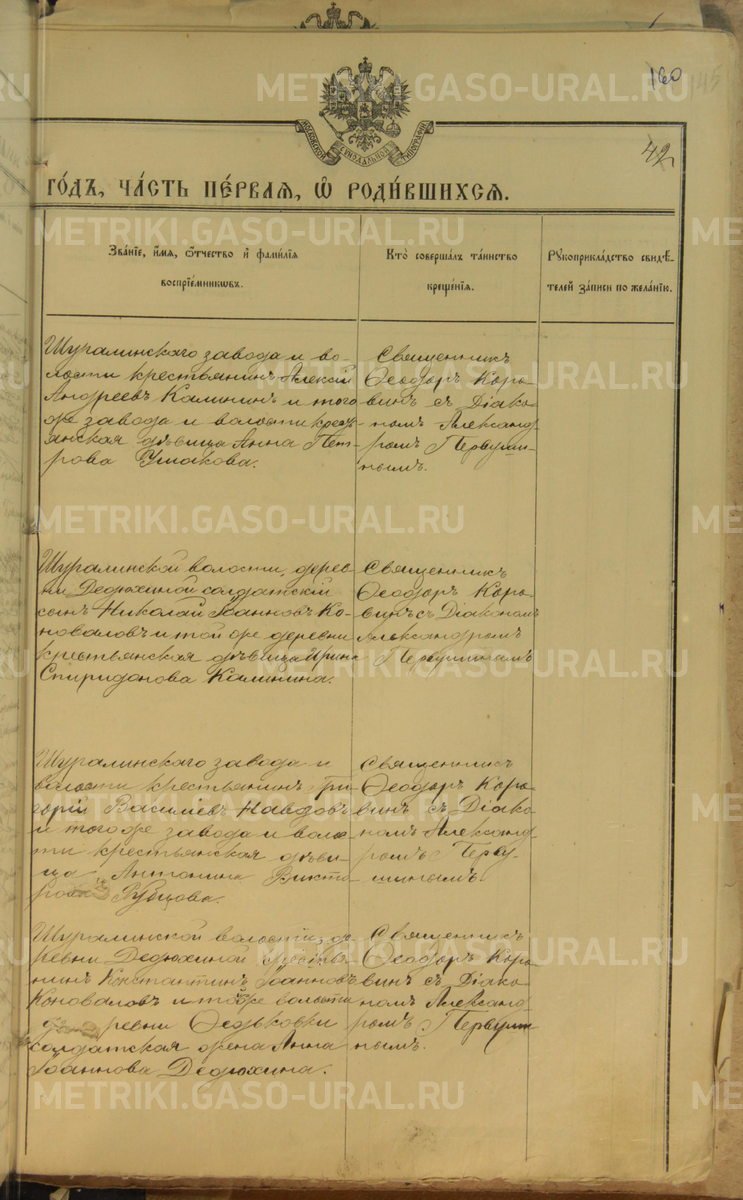 160
145
42
МОСКОВСКОЙ СѴНОДАЛЬНОЙ ТИПОГРАФІИ
ГО́ДЪ, ЧА́СТЬ ПЕ́РВАѦ, Ѽ РОДИ́ВШИХСѦ.
Зва́нїе, и́мѧ, ѻ́тчество и҆ фами́лїѧ
воспрїе́мникѡвъ.
Кто̀ соверша́лъ та́инство
креще́нїѧ.
Рꙋкоприкла́дство свидѣ́-
телей за́писи по жела́нїю.
Шуралинскаго завода и во-
лости крестьянинъ Алексій
Андреевъ Калининъ и того
же завода и волости кресть-
янская дѣвица Анна Пет-
рова Ушакова.
Священникъ
Ѳеодоръ Коро-
винъ съ Діако-
номъ Александ-
ромъ Первуши-
нымъ.
Шуралинской волости, дерев-
ни Дедюхиной солдатскій
сынъ Николай Іоанновъ Ко-
новаловъ и той же деревни
крестьянская дѣвица Ирина
Спиридонова Калинина.
Священникъ
Ѳеодоръ Коро-
винъ съ Діакономъ
Александромъ
Первушинымъ
Шуралинскаго завода и
волости крестьянинъ Гри-
горій Василіевъ
и того же завода и воло-
сти крестьянская дѣви-
ца Антонина Викто-
рова Рубцова.
Священникъ
Ѳеодоръ Коро-
винъ съ Діако-
номъ Александ-
ромъ Перву-
шинымъ.
Шуралинской волости, де-
ревни Дедюхиной крестья-
нинъ Константинъ Іоанновъ
Коноваловъ и той же волости
деревни Ѳедьковки
солдатская жена Анна
Іоаннова Дедюхина.
Священникъ
Ѳеодоръ Коро-
винъ съ Діако-
номъ Александ-
ромъ Первуши-
нымъ.
METRIKI.GASO-URAL.RU